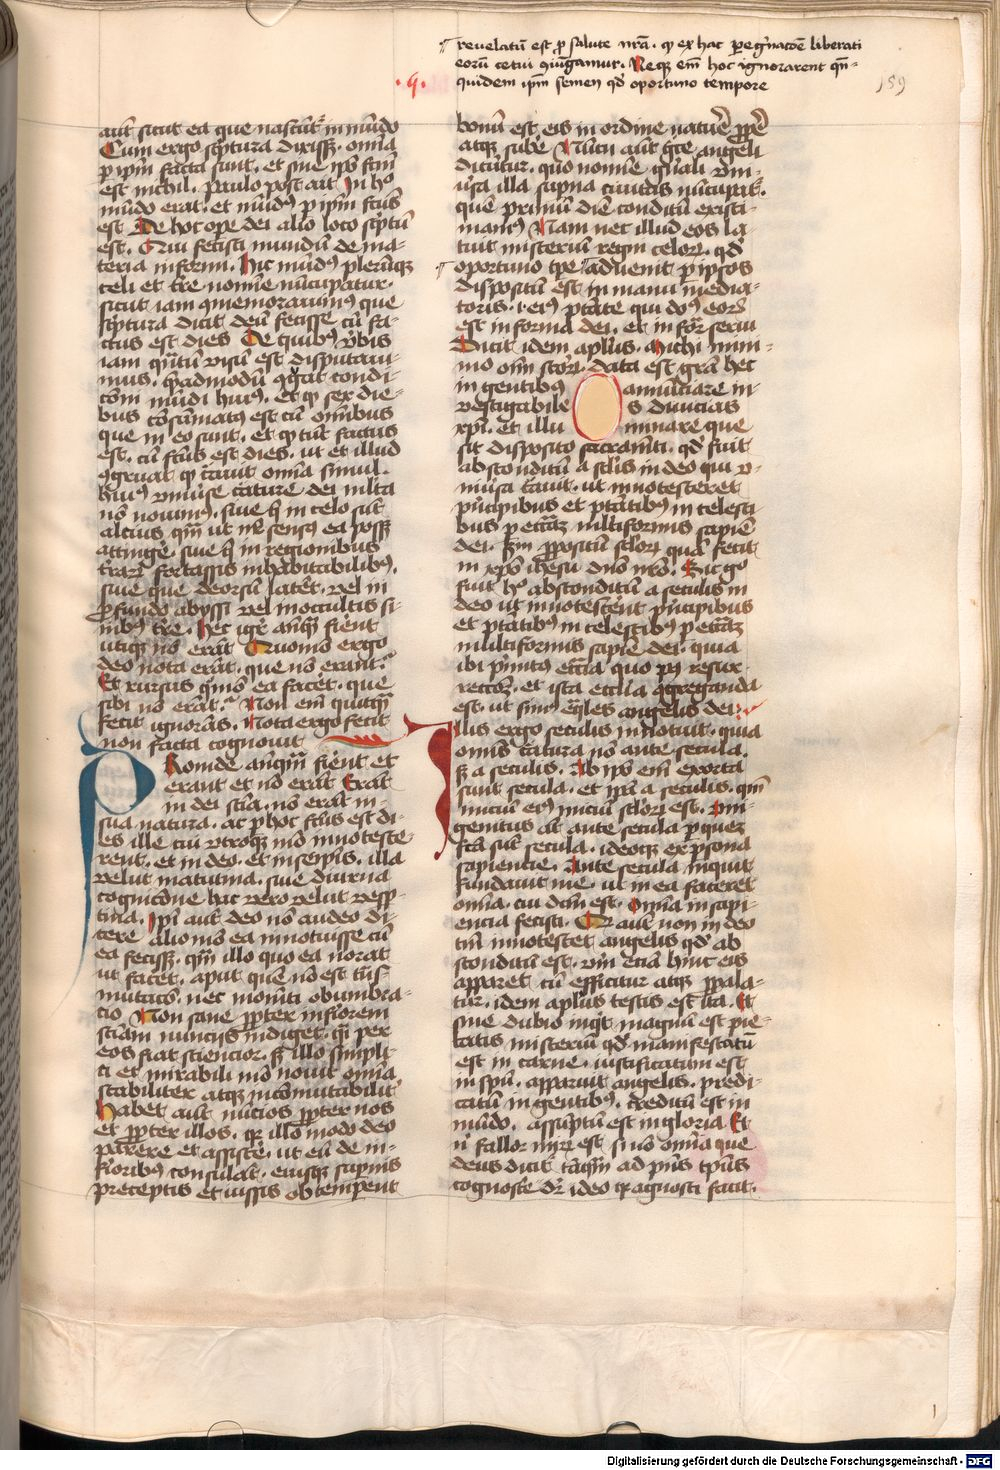 revelatū est ꝑ salute nr̄a. ꝙ ex hac ꝑegͥnacōe liberati
eorū cetui ꝯiūgamur. Neqꝫ em̄ hoc ignorarent qn̄-
quidem ipm̄ semen qd' oportuno tempore
.q.
159
aut sicut ea que nascūt' in mūdo
Cum ergo sc̄ptura dixisꝫ. omīa
ꝑ ip̄m facta sunt. et sine ip̄o fcm̄
est nichil. paulo post ait In hͦ
mūdo erat. et mūdꝰ ꝑ ip̄m fcūs
est De hoc ope dei alio loco sc̄ptū
est. Qui fecisti mundū de ma-
teria informi. Hic mūdꝰ plerūqꝫ
celi et tr̄e nomīe nūcupatur.
sicut iam ꝯmemorauimꝰ que
sc̄ptura dicit deū fecisse cū fa-
ctus est dies De quibꝰ v̄bis
iam qͣntū visū est disputaui-
mus. qͣadmodū ꝯgͥuat condi-
cōni mūdi huiꝰ. et ꝙ sex die-
bus cōsūmatꝰ est cū omībus
que in eo sunt. et ꝙ tūc factus
est. cū fcūs est dies. ut et illud
ꝯgruat ꝙ c̄auit omīa simul.
Huiꝰ vniuīse c̄ature dei ml̄ta
nō nouimꝰ. siue q̄ in celo sūt
alcius qm̄ ut nr̄ sensꝰ ea possꝫ
attingͤ. siue q̄ in regionibus
tr̄arū fortassis inhabitabilibꝰ.
siue que deorsū latēt. vel in
ꝓfundo abyssi vel in occultis si-
nibꝰ tr̄e. Hec igͥ anqͣm fierēt
utiqꝫ nō erāt Quomō ergo
deo nota erāt. que nō erant.
Et rursus quōmō ea facēt. que
sibi nō erāt. Non em̄ quitqͣm
fecit ignorās. Nota ergo fecit
non facta cognouit
Proinde anqͣm fierēt et
erant et nō erāt Erāt
in dei scīa. nō erāt in
sua natura. ac ꝑ hoc fcūs est di-
es ille cui vtroqꝫ mō innotesce-
rent. et in deo. et in seip̄is. illa
velut matutina. siue diurna
cognicōne hac vero velut vesꝑ-
tina. Ipi aut deo nō audeo di-
cere alio mō ea innotuisse cū
ea fecissꝫ. qͣm illo quo ea norat
ut facēt. aput quē nō est tn̄s-
mutacō. nec momēti obumbra-
cio Non sane ꝓpter inferiorem
sciam nuncijs indiget. qͣi per
eos fiat sciencior. sꝫ illo simpli-
ci et mirabili mō nouit omīa
stabiliter atqꝫ incōmutabilit̄
Habet aut nūcios ꝓpter nos
et ꝓpter illos. qꝛ illo modo deo
parere et assistē. ut eū de in-
ferioribꝰ consulāt. eiusqꝫ supnis
preceptis et iussis obtempent
bonū est eis in ordine natur̄e ꝓpͤ
atqꝫ sube Nūcij aut gͤce angeli
dicūtur. quo nomīe gn̄ali vni-
uīsa illa supna ciuitas nūcupat'.
quē primum diē conditū existi-
mamꝰ Nam nec illud eos la-
tuit misteriū regni celorū. qd'
oportuno tpe aduenit ꝑ ip̄sos
dispositū est in manu mediā-
toris. i. eiꝰ ptāte qui dn̄s eorū
est in forma dei. et in for̄ serui
Dicit idem aplūs. Michi mini-
mo omī sctōr. data est grā hec
in gentibꝰ annūciare in-
vestigabiles diuicias
xpī. et illuminare que
sit dispositō sacramēti. qd' fuit
abscōnditū a sclīs in deo qui v-
niuīsa c̄auit. ut innotesceret
pͥncipibus et ptātibꝰ in celesti-
bus ꝑ ecc̄āꝫ ml̄tiformis sapiēn
dei. Scdm̄ ꝓpositū sclōr quā fecit
in xpō ihesu dn̄o nr̄o. Sic go
fuit hͦ absconditū a seculis in
deo ut innotescēnt pͥncipibus
et ptātibꝰ in celestibꝰ ꝑ ecc̄āꝫ
ml̄tiformis sapiē dei. quia
ibi pͥmitꝰ ecc̄īa quo pꝰ resur-
rectōꝫ. et ista ecclīa ꝯgreganda
est. ut simꝰ eqͣles angelis dei.
Illis ergo seculis innotuit. quia
omīs c̄atura nō ante secula.
sꝫ a seculis. Ab ip̄o em̄ exorta
sunt secula. et ip̄a a seculis. qm̄
iniciū eiꝰ iniciū sclōr est. Uni-
genitus at ante secula ꝑ quez
fc̄a sūt secula. ideoqꝫ ex ꝑsona
sapiencie. Ante secula inquit
fundauit me. ut in ea faceret
omīa. cui dcm̄ est. Omīa in sapi-
encia fecisti. Qꝛ aut non in deo
tm̄ innotescet angelis qd' ab
sconditū est. vm̄ eciā hinc eis
apparet cū efficitur atqꝫ ꝓpala-
tur. idem aplūs testis est ita. Et
sine dubio inqͥt magnū est pie-
tatis misteriū qd' manifestatū
est in carne. iustificatum est
in spū. apparuit angelis. predi-
catū in gentibꝰ. creditū est in
mūdo. assūptū est in gloria Et
ni fallor mirū est si nō omīa que
deus dicit' tāqͣm ad pn̄s tpūs
cognosce dr̄ ideo qꝛ agnosci facit.
1
Digitalisierung gefördert durch die Deutsche Forschungsgemeinschaft - DFG